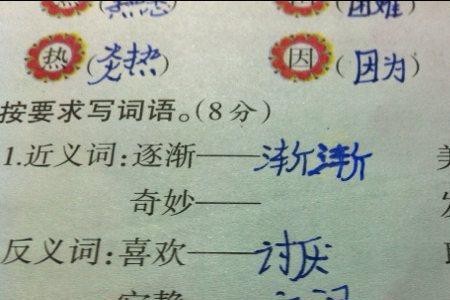 热(炎热) 因(因为)
按要求写词语。(8分)
1.近义词:逐渐——渐渐
奇妙——
反义词:喜欢——讨厌